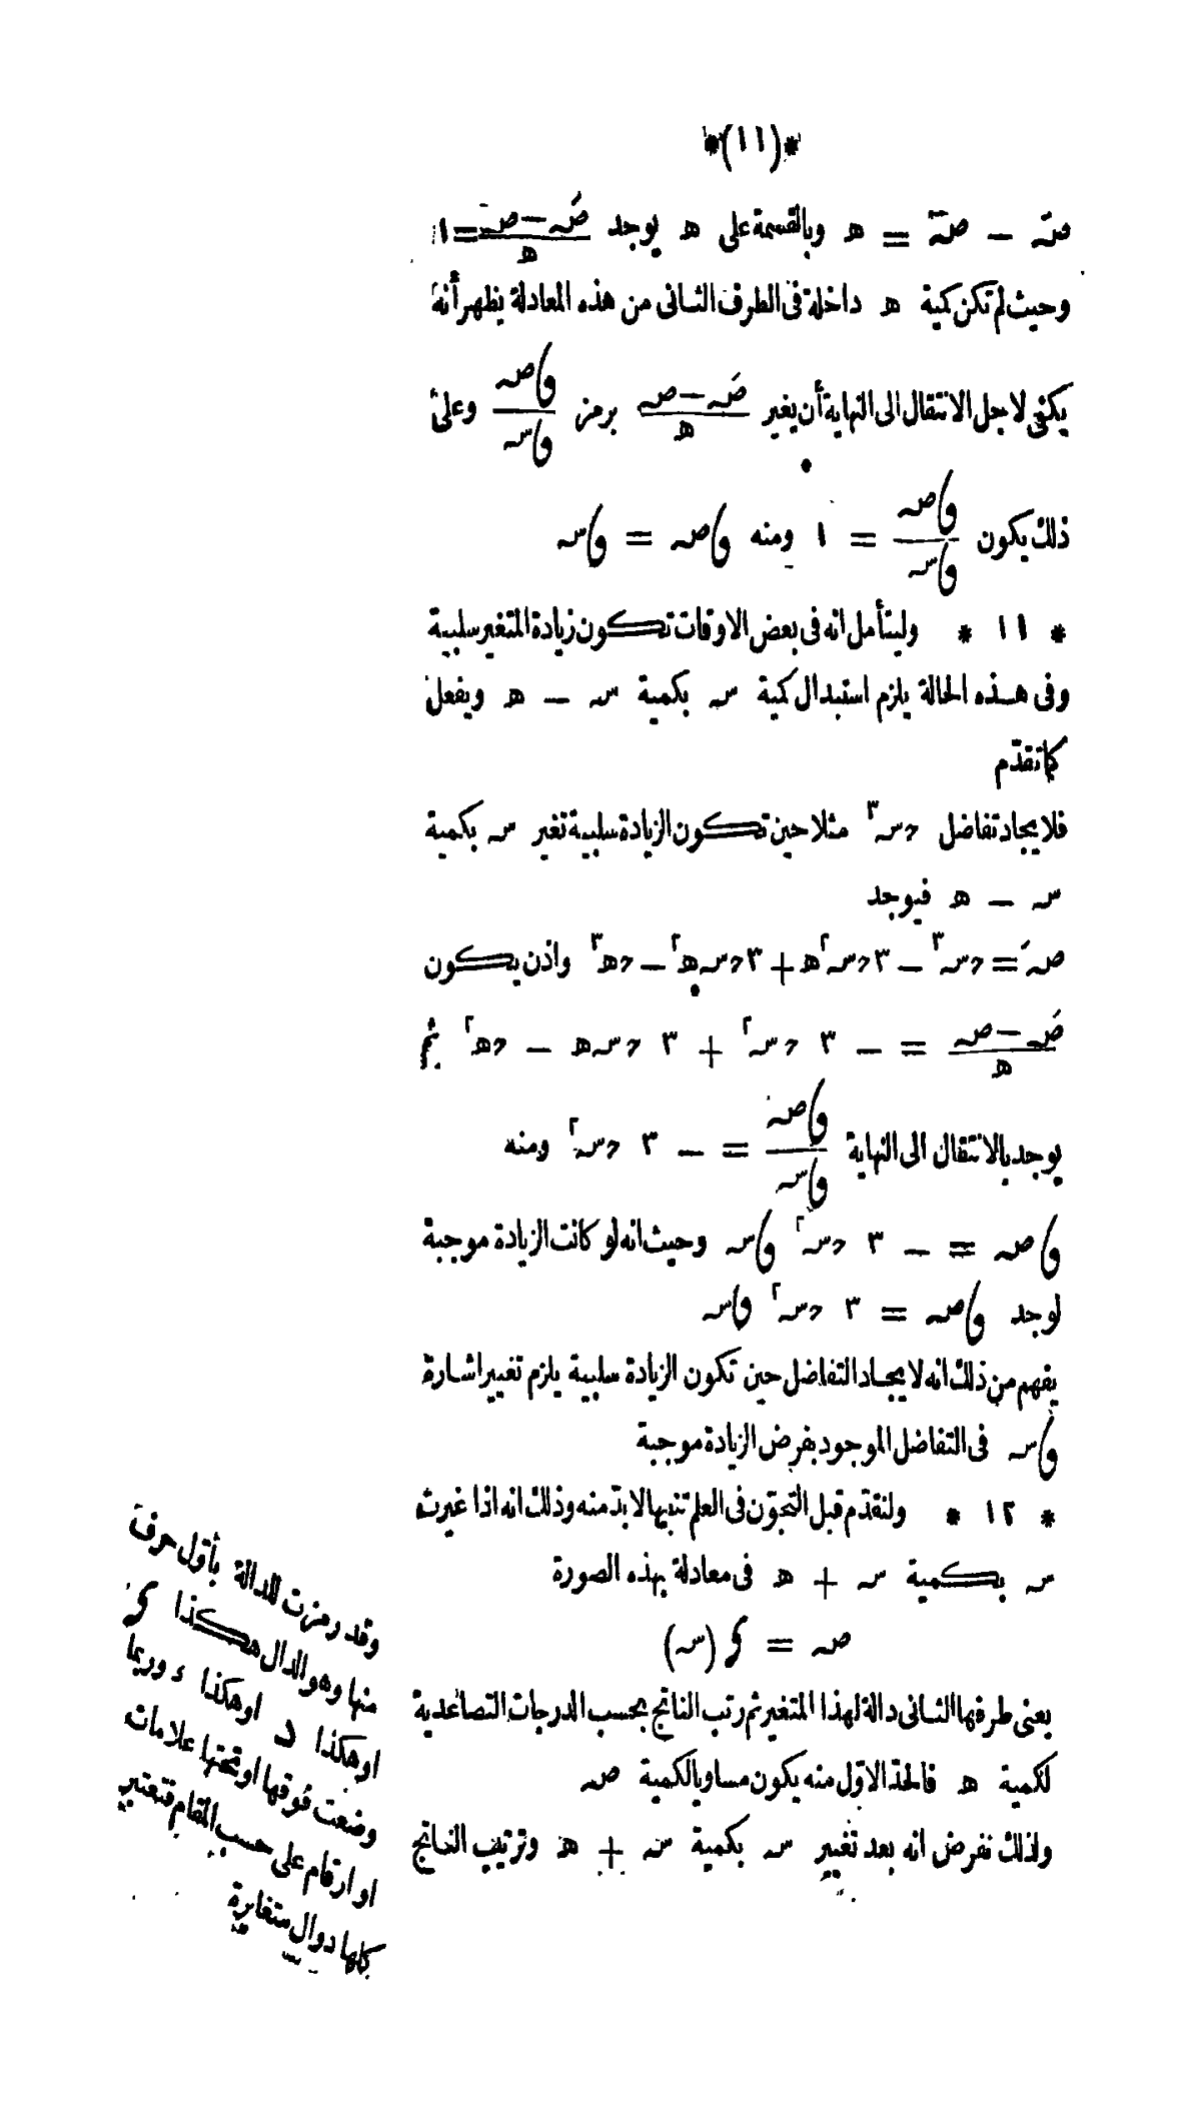 *(١١)*
صَہ − صہ = ھ وبالقسمة على ھ يوجد (صَہ − صہ)/ھ = ١
وحيث لم تكن كمية ھ داخلة فى الطرف الثانى من هذه المعادلة يظهر أنه
يكفى لاجل الانتقال الى النهاية أن يغير (صَہ − صہ)/ھ برمز وصہ/وسہ وعلى
ذلك يكون وصہ/وسہ = ١ ومنه وصہ = وسہ
* ١١ * وليتأمل انه فى بعض الاوقات تكون زيادة المتغير سلبية
وفى هذه الحالة يلزم استبدال كمية سہ بكمية سہ − ھ ويفعل
كما تقدّم
فلايجاد تفاضل حسہ٣ مثلا حين تكون الزيادة سلبية تغير سہ بكمية
سہ − ھ فيوجد
صَہ = حسہ٣ − ٣حسہ٢ھ + ٣حسہھ٢ − حھ٣ واذن يكون
(صَہ − صہ)/ھ = − ٣ حسہ٢ + ٣ حسہھ − حھ٢ ثم
يوجد بالانتقال الى النهاية وصہ/وسہ = − ٣ حسہ٢ ومنه
وصہ = − ٣ حسہ٢ وسہ وحيث انه لو كانت الزيادة موجبة
لوجد وصہ = ٣ حسہ٢ وسہ
يفهم من ذلك انه لايجاد التفاضل حين تكون الزيادة سلبية يلزم تغيير اشارة
وسہ فى التفاضل الموجود بفرض الزيادة موجبة
* ١٢ * ولنقدّم قبل التجوّن فى العلم تنبيها لابدّ منه وذلك انه اذا غيرت
سہ بكمية سہ + ھ فى معادلة بهذه الصورة
صہ = د (سہ)
يعنى طرفها الثانى دالة لهذا المتغير ثم رتب الناتج بحسب الدرجات التصاعدية
لكمية ھ فالحدّ الاوّل منه يكون مساويا لكمية صہ
ولذلك نفرض انه بعد تغيير سہ بكمية سہ + ھ وترتيب الناتج
وقد رمزت للدالة بأوّل حرف
منها وهو الدال هكذا د
او هكذا د او هكذا ء وربما
وضعت فوقها او تحتها علامات
او ارقام على حسب المقام فتعتبر
كلها دوال متغايرة